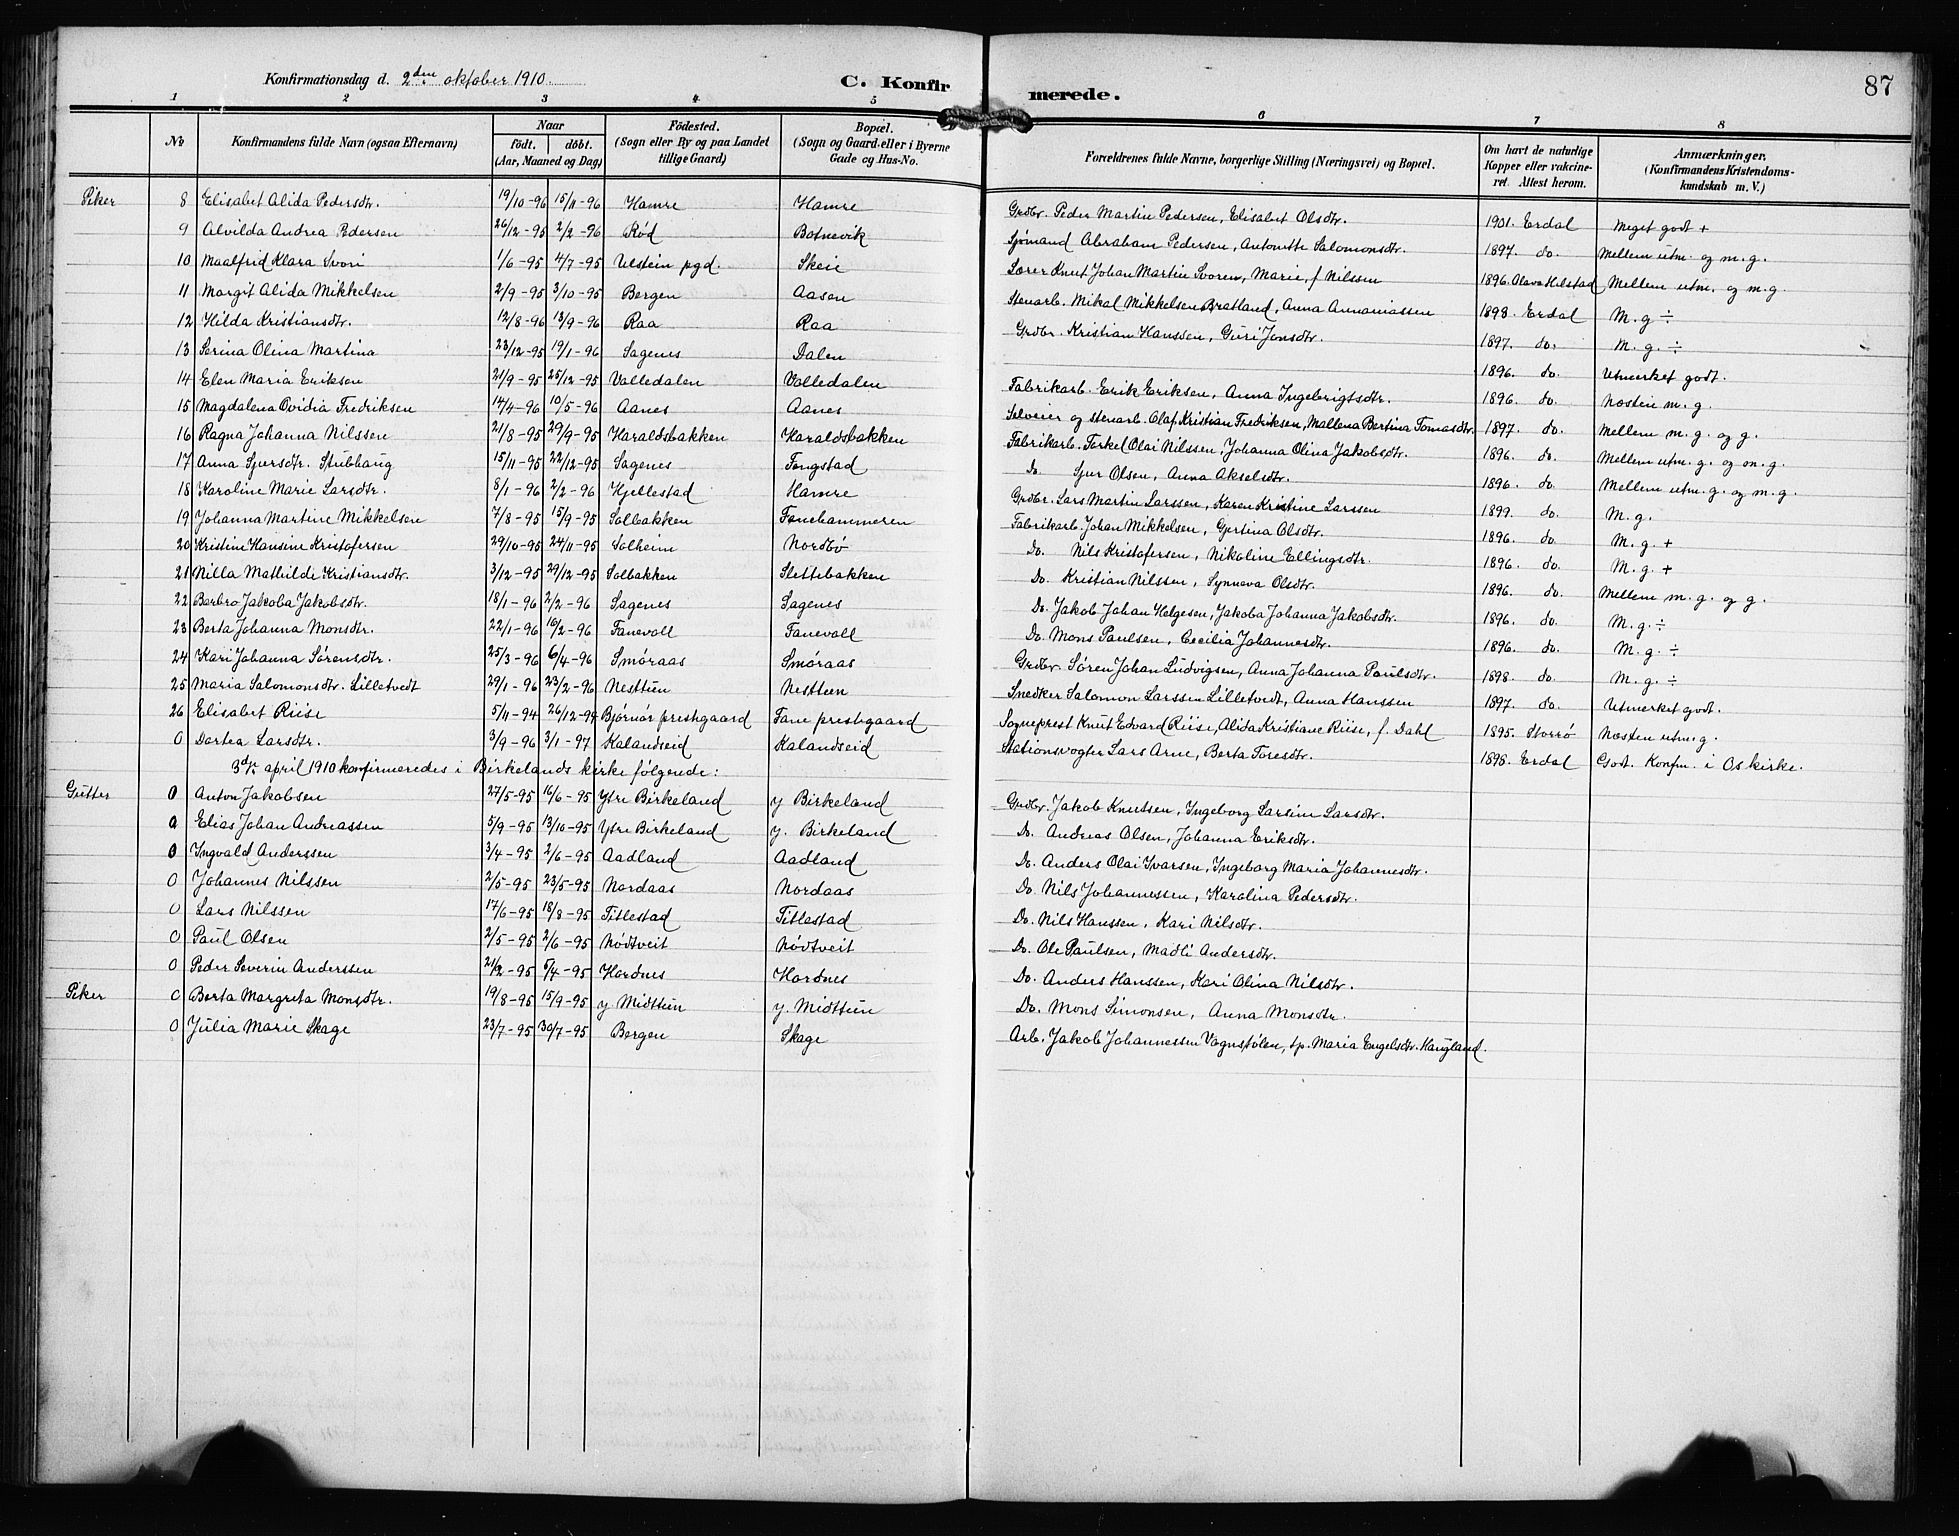 Konfirmationsdag d. 2den oktober 1910. C. Konfirmerede. 87
1 2 3 4 5 6 7 8
No Konfirmandens fulde Navn (ogsaa Efternavn) Naar født. døbt. (Aar, Maaned og Dag) Fødested. (Sogn eller By og paa Landet tillige Gaard) Bopæl. (Sogn og Gaard eller i Byerne Gade og Hus-No. Forældrenes fulde Navne, borgerlige Stilling (Næringsvei) og Bopæl. Om havt de naturlige Kopper eller vakcineret. Attest herom. Anmærkninger. (Konfirmandens Kristendomskundskab m. V.)
Piker 8 Elisabet Alida Pedersdtr. 19/10-96 15/11-96 Hamre Hamre Grdbr. Peder Martin Pedersen, Elisabet Olsdtr. 1901. Erdal Meget godt +
9 Alvilda Andrea Pedersen 26/12-95 2/2-96 Rød Botnevik Sjømand Abraham Pedersen, Antonette Salomonsdtr. 1897. do. Mellem utm. og m.g.
10 Maalfrid Klara Svori 1/6-95 4/7-95 Ulstein pgd. Skeie Lærer Knut Johan Martin Svoren, Marie, f. Nilssen 1896. Olava Helstad Mellem utm. og m.g.
11 Margit Alida Mikkelsen 2/9-95 3/10-95 Bergen Aasen Stenarb. Mikal Mikkelsen Bratland, Anna Annaniassen 1898. Erdal M.g. ÷
12 Hilda Kristiansdtr. 12/8-96 13/9-96 Raa Raa Grdbr. Kristian Hanssen, Guri Jonsdtr. 1897. do. M.g. ÷
13 Serina Olina Martina 23/12-95 19/1-96 Sagenes Dalen 1896. do. Utmerket godt.
14 Elen Maria Eriksen 21/9-95 25/12-95 Valledalen Valledalen Fabrikarb. Erik Eriksen, Anna Ingebrigtsdtr. 1896. do. Næsten m.g.
15 Magdalena Ovidia Fredriksen 14/4-96 10/5-96 Aanes Aanes Selveier og stenarb. Olaf Kristian Fredriksen, Mallena Bertina Tomasdtr. 1897. do. Mellem m.g. og g.
16 Ragna Johanna Nilssen 21/8-95 29/9-95 Haraldsbakken Haraldsbakken Fabrikarb. Terkel Olai Nilssen, Johanna Olina Jakobsdtr. 1896. do. Mellem utm.g. og m.g.
17 Anna Sjursdtr. Stubhaug 15/11-95 22/12-95 Sagenes Fongstad Do. Sjur Olsen, Anna Akselsdtr. 1896. do. Mellem utm.g. og m.g.
18 Karoline Marie Larsdtr. 8/1-96 2/2-96 Hjellestad Hamre Grdbr. Lars Martin Larssen, Karen Kristine Larssen 1899. do. M.g.
19 Johanna Martine Mikkelsen 7/8-95 15/9-95 Solbakken Fanehammeren Fabrikarb. Johan Mikkelsen, Gjertina Olsdtr. 1896. do. M.g. +
20 Kristine Hansine Kristofersen 29/10-95 24/11-95 Solheim Nordbø Do. Nils Kristofersen, Nikoline Ellingsdtr. 1896. do. M.g. +
21 Nilla Mathilde Kristiansdtr. 3/12-95 29/12-95 Solbakken Slettebakken Do. Kristian Nilssen, Synneva Olsdtr. 1896. do. Mellem m.g. og g.
22 Berbro Jakoba Jakobsdtr. 18/1-96 2/2-96 Sagenes Sagenes Do. Jakob Johan Helgesen, Jakoba Johanna Jakobsdtr. 1896. do. M.g. ÷
23 Berta Johanna Monsdtr. 22/1-96 16/2-96 Fanevoll Fanevoll Do. Mons Paulsen, Cecilia Johannesdtr. 1896. do. M.g. ÷
24 Kari Johanna Sørensdtr. 25/3-96 6/4-96 Smøraas Smøraas Grdbr. Søren Johan Ludvigsen, Anna Johanna Paulsdtr. 1898. do. M.g. ÷
25 Maria Salomonsdtr. Lilletvedt 29/1-96 23/2-96 Nesttun Nesttun Snedker Salomon Larssen Lilletvedt, Anna Hanssen 1897. do. Utmerket godt.
26 Elisabet Riise 5/11-94 26/12-94 Bjørnør prestegaard Fane prestegaard Sogneprest Knut Edvard Riise, Alida Kristiane Riise, f. Dahl 1895. Storrø Næsten utm.g.
0 Dortea Larsdtr. 3/9-96 3/1-97 Kalandseid Kalandseid Stationsvogter Lars Arne, Berta Toresdtr. 1898. Erdal Godt. Konfm. i Os kirke.
3die april 1910 konfirmeredes i Birkelands kirke følgende:
Gutter 0 Anton Jakobsen 27/5-95 16/6-95 Ytre Birkeland y Birkeland Grdbr. Jakob Knutsen, Ingeborg Larsine Larsdtr.
0 Elias Johan Andreassen 5/9-95 13/10-95 Ytre Birkeland y. Birkeland Do. Andreas Olsen, Johanna Eriksdtr.
0 Ingvald Anderssen 3/4-95 2/6-95 Aadland Aadland Do. Anders Olai Ivarsen, Ingeborg Maria Johannesdtr.
0 Johannes Nilssen 2/5-95 23/5-95 Nordaas Nordaas Do. Nils Johannessen, Karolina Pedersdtr.
0 Lars Nilssen 17/6-95 18/8-95 Titlestad Titlestad Do. Nils Hanssen, Kari Nilsdtr.
0 Paul Olsen 2/5-95 2/6-95 Nødtveit Nødtveit Do. Ole Paulsen, Madli Andersdtr.
0 Peder Severin Anderssen 21/2-95 5/4-95 Hordnes Hordnes Do. Anders Hanssen, Kari Olina Nilsdtr.
Piker 0 Berta Margreta Monsdtr. 19/8-95 15/9-95 y Midttun y. Midttun Do. Mons Simonsen, Anna Monsdtr.
0 Julia Marie Skage 23/7-95 30/7-95 Bergen Skage Arb. Jakob Johannessen Vognstølen, tp. Maria Engelsdtr. Haugland.